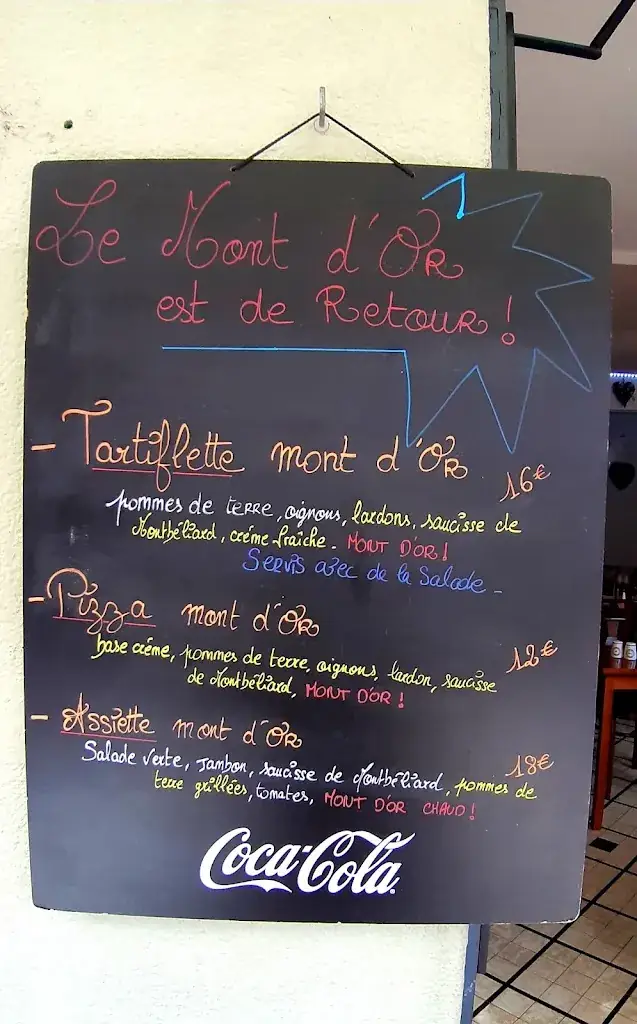 Le Mont d'Or
est de Retour !
- Tartiflette mont d'Or 16€
pommes de terre, oignons, lardons, saucisse de
Montbéliard, crème fraîche. MONT D'OR !
Servis avec de la Salade -
- Pizza mont d'Or 12€
base crème, pommes de terre, oignons, lardon, saucisse
de Montbéliard, MONT D'OR !
- Assiette mont d'Or 18€
Salade verte, Jambon, saucisse de Montbéliard, pommes de
terre grillées, tomates, MONT D'OR CHAUD !
Coca-Cola